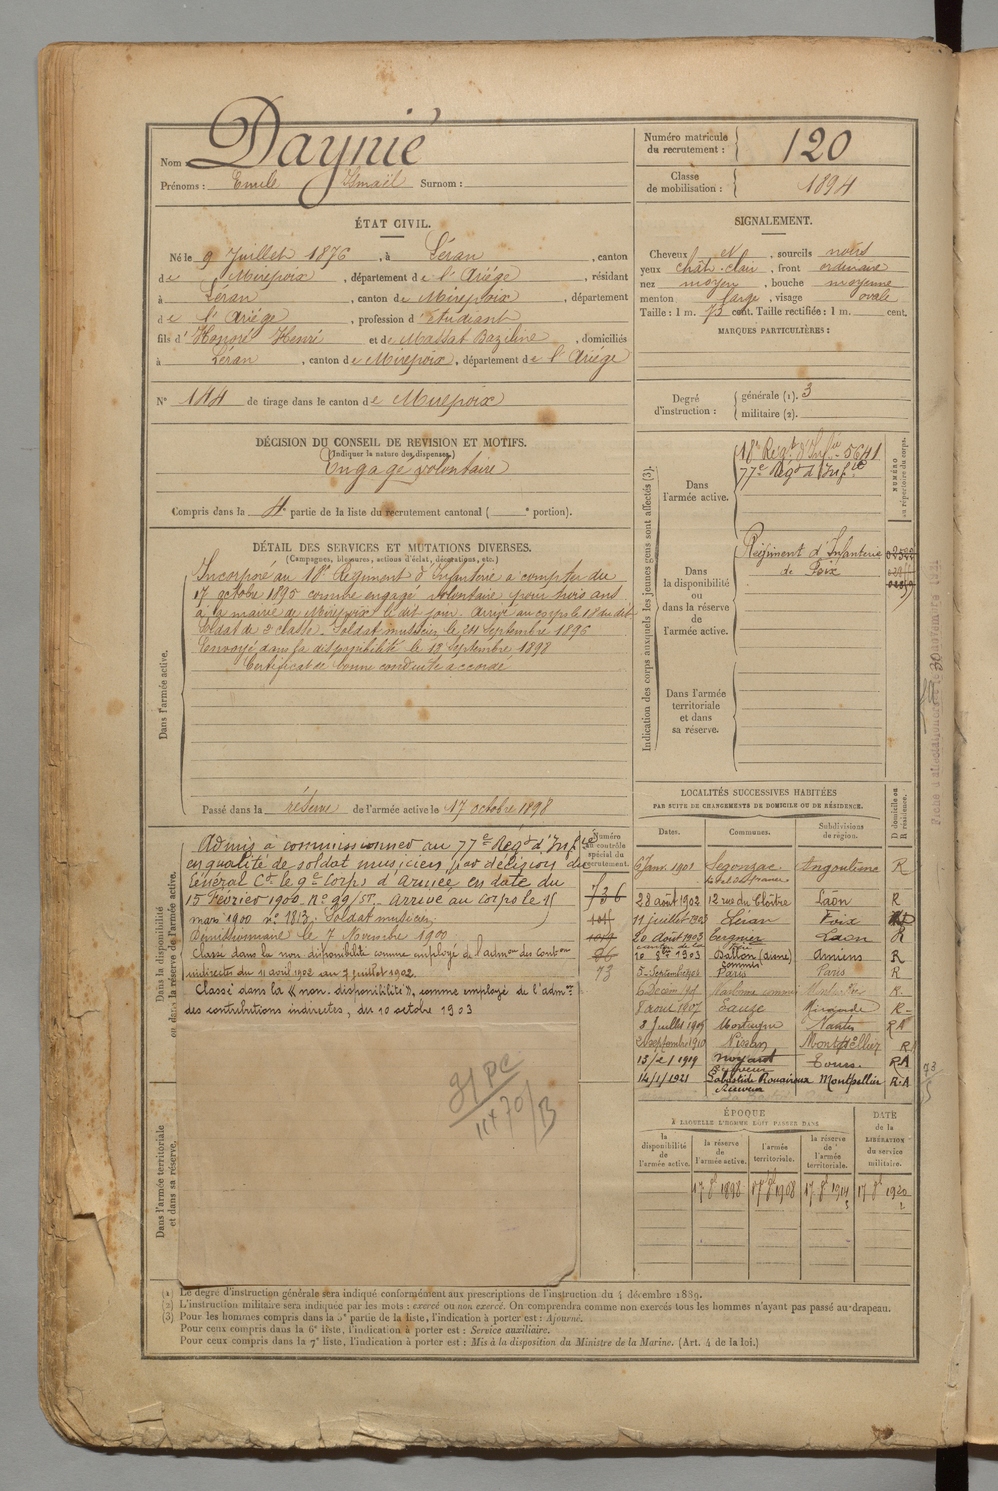 Nom : Daynié
Prénoms : Emile Ismaël Surnom :
Numéro matricule du recrutement : 120
Classe de mobilisation : 1894
ÉTAT CIVIL.
Né le 9 Juillet 1876, à Léran, canton
de Mirepoix, département de l'Ariége, résidant
à Léran, canton de Mirepoix, département
de l'Ariége, profession d'étudiant
fils d'Honoré Henri et de Massat Bazeline, domiciliés
à Léran, canton de Mirepoix, département de l'Ariége
N° 144 de tirage dans le canton de Mirepoix
SIGNALEMENT.
Cheveux et, sourcils noirs
yeux chât. clair, front ordinaire
nez moyen, bouche moyenne
menton large, visage ovale
Taille : 1 m. 73 cent. Taille rectifiée : 1 m. cent.
MARQUES PARTICULIÈRES :
Degré d'instruction : générale (1). 3
militaire (2).
DÉCISION DU CONSEIL DE REVISION ET MOTIFS.
(Indiquer la nature des dispenses.)
Engagé volontaire
Compris dans la 4e partie de la liste du recrutement cantonal ( e portion).
Indication des corps auxquels les jeunes gens sont affectés (3).
NUMÉRO au répertoire du corps.
Dans l'armée active.
18e Régt d'Infie 5641
77e Régt d'Infie
Dans la disponibilité ou dans la réserve de l'armée active.
Régiment d'Infanterie
de Foix
Dans l'armée territoriale et dans sa réserve.
DÉTAIL DES SERVICES ET MUTATIONS DIVERSES.
(Campagnes, blessures, actions d'éclat, décorations, etc.)
Dans l'armée active.
Incorporé au 18e Régiment d'Infanterie à compter du
17 octobre 1895 comme engagé volontaire pour trois ans
à la mairie de Mirepoix le dit jour. Arrivé au corps le 18 du dit
Soldat de 2e classe. Soldat musicien le 24 Septembre 1896
Envoyé dans la disponibilité le 12 Septembre 1898
Certificat de bonne conduite accordé
Passé dans la réserve de l'armée active le 17 octobre 1898
Dans la disponibilité ou dans la réserve de l'armée active.
Numéro au contrôle spécial du recrutement.
Admis à commissionner au 77e Régt d'Infie
en qualité de soldat musicien, par décision du
Général Ct le 9e Corps d'Armée en date du
15 Février 1900. N° 99/ST. Arrivé au corps le 15
mars 1900 n° 1813. Soldat musicien
Démissionnaire le 7 Novembre 1900
Classé dans la non disponibilité comme employé de l'admon des conton
indirectes du 11 avril 1902 au 7 juillet 1902.
Classé dans la « non-disponibilité », comme employé de l'admon
des contributions indirectes, du 10 octobre 1903
736
73
LOCALITÉS SUCCESSIVES HABITÉES
PAR SUITE DE CHANGEMENTS DE DOMICILE OU DE RÉSIDENCE.
Dates. Communes. Subdivisions de région. D domicile ou R résidence.
6 Janv. 1901 Segonzac Angoulême R
28 août 1902 12 rue du Cloître Laon R
11 juillet 1903 Léran Foix
20 Août 1903 Tergnier Laon R
10 8bre 1903 Ballon (aisne) Amiens R
5 Septembre Paris Paris R
R
8 août 1907 Eauze Mirande R
2 Juillet 1909 Nantes RA
2 septembre 1910 Nissan Montpellier R
13/2/1919 Noyant Tours. RA
14/1/1921 Labastide Rouairoux Montpellier R.A
Receveur
31 PC
11+70/B
ÉPOQUE
À LAQUELLE L'HOMME DOIT PASSER DANS
DATE de la LIBÉRATION du service militaire.
la disponibilité de l'armée active. la réserve de l'armée active. l'armée territoriale. la réserve de l'armée territoriale.
17 8e 1898 17 8e 1908 17 8e 1914 17 8e 1920
Dans l'armée territoriale et dans sa réserve.
(1) Le degré d'instruction générale sera indiqué conformément aux prescriptions de l'instruction du 4 décembre 1889.
(2) L'instruction militaire sera indiquée par les mots : exercé ou non exercé. On comprendra comme non exercés tous les hommes n'ayant pas passé au drapeau.
(3) Pour les hommes compris dans la 5e partie de la liste, l'indication à porter est : Ajourné.
Pour ceux compris dans la 6e liste, l'indication à porter est : Service auxiliaire.
Pour ceux compris dans la 7e liste, l'indication à porter est : Mis à la disposition du Ministre de la Marine. (Art. 4 de la loi.)